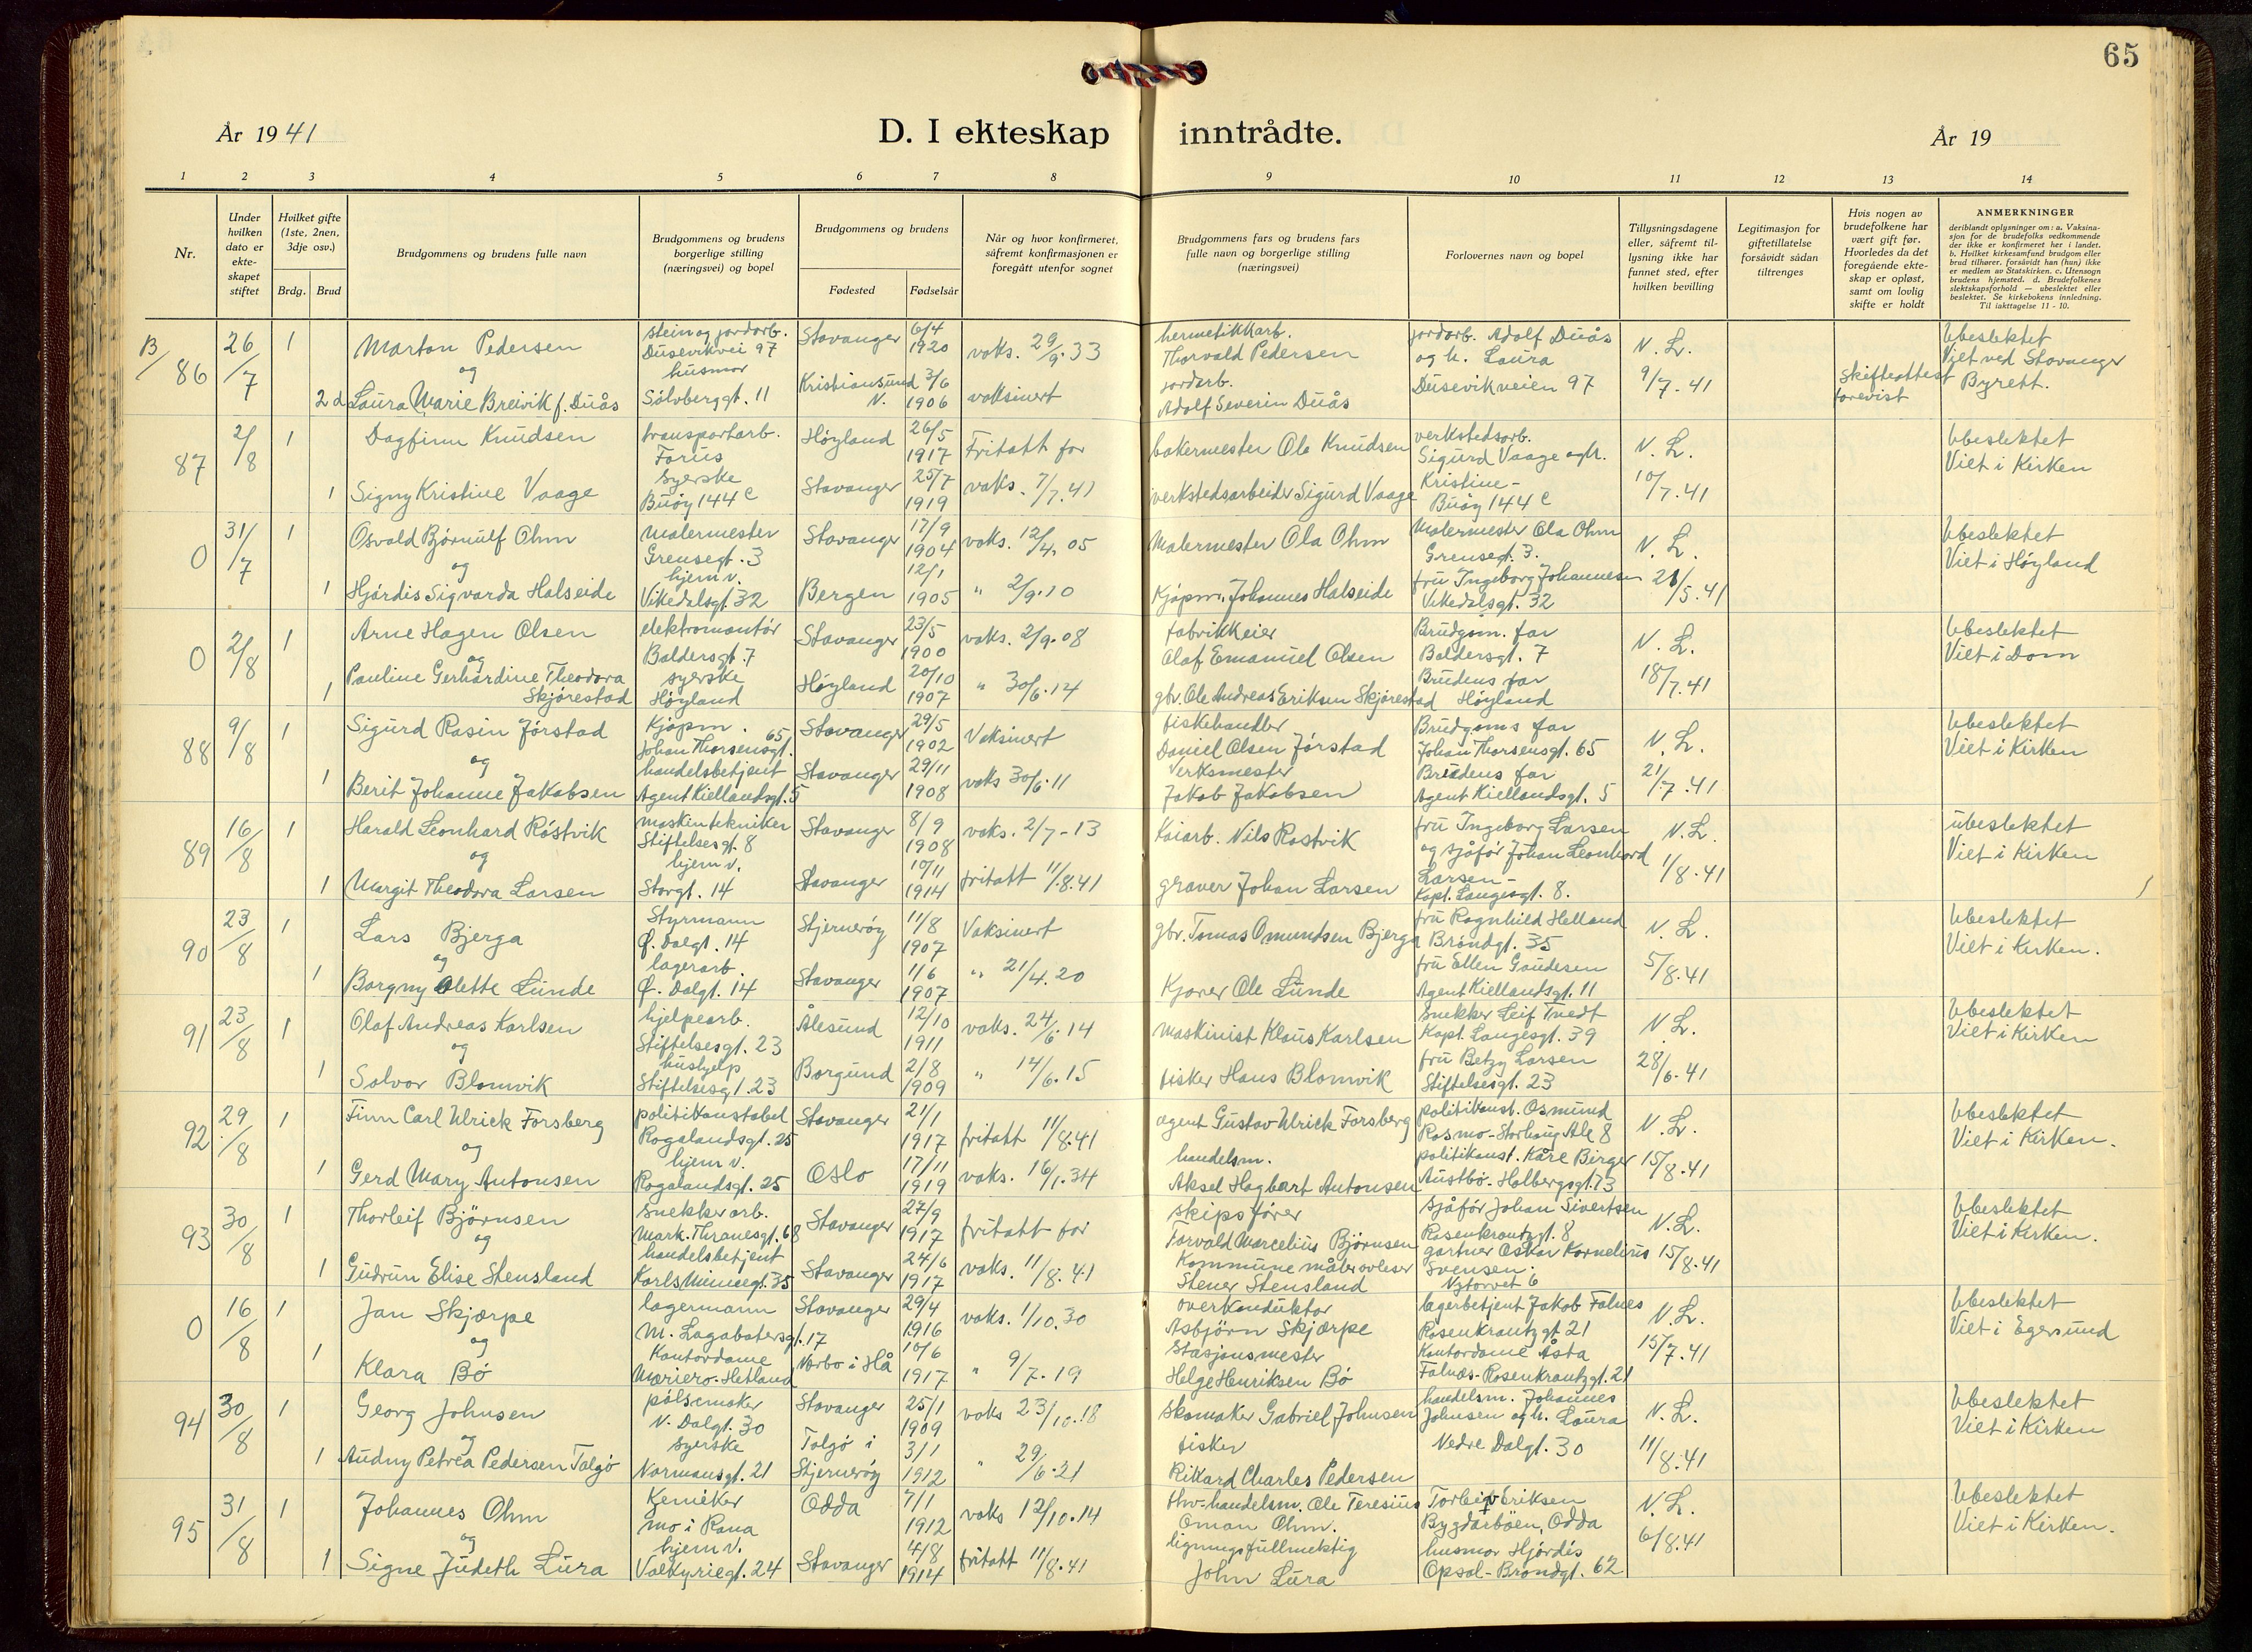 65
År 1941
D. I ekteskap inntrådte.
År 19
1 2 3 4 5 6 7 8 9 10 11 12 13 14
Nr.
Under hvilken dato er ekte-skapet stiftet
Hvilket gifte (1ste, 2nen, 3dje osv.)
Brdg. Brud
Brudgommens og brudens fulle navn
Brudgommens og brudens borgerlige stilling (næringsvei) og bopel
Brudgommens og brudens
Fødested Fødselsår
Når og hvor konfirmeret, såfremt konfirmasjonen er foregått utenfor sognet
Brudgommens fars og brudens fars fulle navn og borgerlige stilling (næringsvei)
Forlovernes navn og bopel
Tillysningsdagene eller, såfremt til-lysning ikke har funnet sted, efter hvilken bevilling
Legitimasjon for giftetillatelse forsåvidt sådan tiltrenges
Hvis nogen av brudefolkene har vært gift før. Hvorledes da det foregående ekte-skap er opløst, samt om lovlig skifte er holdt
ANMERKNINGER
deriblandt oplysninger om: a. Vaksina-sjon for de brudefolks vedkommende der ikke er konfirmeret her i landet. b. Hvilket kirkesamfund brudgom eller brud tilhører, forsåvidt han (hun) ikke er medlem av Statskirken. c. Utensogn brudens hjemsted. d. Brudefolkenes slektskapsforhold — ubeslektet eller beslektet. Se kirkebokens innledning. Til iakttagelse 11 - 10.
B/86 26/7 1 Marton Pedersen stein og jordarb. Dusevikvei 97 Stavanger 6/4 1920 vaks. 29/9.33 hermetikkarb. Thorvald Pedersen jordarb. Adolf Duås og h. Laura N. L. Ubeslektet Viet ved Stavanger
og
2d Laura Marie Breivik f. Duås husmor Sølvberggt. 11 Kristiansund N. 3/6 1906 vaksinert jordarb. Adolf Severin Duås Dusevikveien 97 9/7.41 Skifteattest forevist Byrett.
87 2/8 1 Dagfinn Knudsen transportarb. Forus Høyland 26/5 1917 Fritatt for bakermester Ole Knudsen verkstedsarb. Sigurd Vaage og h. N. L. Ubeslektet
1 Signy Kristine Vaage syerske Buøy 144 c Stavanger 25/7 1919 vaks. 7/7.41 verkstedsarbeider Sigurd Vaage Kristine - Buøy 144 c 10/7.41 Viet i Kirken
0 31/7 1 Osvald Bjørnulf Ohm Malermester Grensegt. 3 Stavanger 17/9 1904 vaks. 12/4.05 Malermester Ola Ohm Malermester Ola Ohm Grensegt. 3. N. L. Ubeslektet
og
1 Hjørdis Sigvarda Halseide hjem v. Vikedalsgt. 32 Bergen 12/1 1905 " 2/9.10 Kjøpm. Johannes Halseide fru Ingeborg Johannesen Vikedalsgt. 32 21/5.41 Viet i Høyland
0 2/8 1 Arne Hagen Olsen elektromontør Baldersgt. 7 Stavanger 23/5 1900 vaks. 2/9.08 fabrikkeier Olaf Emanuel Olsen Brudgom. far Baldersgt. 7 N. L. Ubeslektet
og
1 Pauline Gerhardine Theodora Skjørestad syerske Høyland Høyland 20/10 1907 " 30/6.14 gbr. Ole Andreas Eriksen Skjørestad Brudens far Høyland 18/7.41 Viet i Dom
88 9/8 1 Sigurd Rasin Jørstad Kjøpm. Johan Thorsensgt. 65 Stavanger 29/5 1902 Vaksinert fiskehandler Daniel Olsen Jørstad Brudgoms far Johan Thorsensgt. 65 N. L. Ubeslektet
og
1 Berit Johanne Jakobsen handelsbetjent Agent Kiellandsgt. 5 Stavanger 29/11 1908 vaks 30/6.11 Verksmester Jakob Jakobsen Brudens far Agent Kiellandsgt. 5 21/7.41 Viet i Kirken
89 16/8 1 Harald Leonhard Røstvik maskintekniker Stiftelsesgt. 8 Stavanger 8/9 1908 vaks. 2/7-13 Kaiarb. Nils Rostvik fru Ingeborg Larsen og sjåfør Johan Leonhard N. L. ubeslektet
og
1 Margit Theodora Larsen hjem v. Storgt. 14 Stavanger 10/11 1914 fritatt 11/8.41 graver Johan Larsen Larsen - Kapt. Langesgt. 8. 1/8.41 Viet i Kirken
90 23/8 1 Lars Bjerga Styrmann Ø. Dalgt. 14 Stjernerøy 11/8 1907 Vaksinert gbr. Tomas Omundsen Bjerga fru Ragnhild Helland Brøndgt. 35 N. L. Ubeslektet
og
1 Borgny Olette Lunde lagerarb. Ø. Dalgt. 14 Stavanger 1/6 1907 " 21/4.20 Kjører Ole Lunde fru Ellen Gaudesen Agent Kiellandsgt. 11 5/8.41 Viet i Kirken.
91 23/8 1 Olaf Andreas Karlsen hjelpearb. Stiftelsesgt. 23 Ålesund 12/10 1911 vaks. 24/6.14 maskinist Klaus Karlsen Snekker Leif Tvedt Kapt. Langesgt. 39 N. L. Ubeslektet
og
1 Solvor Blomvik hushjelp Stiftelsesgt. 23 Borgund 2/8 1909 " 14/6.15 fisker Hans Blomvik fru Betzy Larsen Stiftelsesgt. 23 28/6.41 Viet i Kirken
92 29/8 1 Finn Carl Ulrick Forsberg politikonstabel Rogalandsgt. 25 Stavanger 21/1 1917 fritatt 11/8.41 agent Gustav Ulrick Forsberg politikonst. Osmund Rosmo - Storhaug Alle 8 N. L. Ubeslektet
og
1 Gerd Mary Antonsen hjem v. Rogalandsgt. 25 Oslo 17/11 1919 vaks. 16/1.34 handelsm. Aksel Hagbart Antonsen politikonst. Kåre Birger Austbø. Holbergsgt. 73 15/8.41 Viet i Kirken.
93 30/8 1 Thorleif Bjørnsen Snekkerarb. Mark. Thranesgt. 68 Stavanger 27/9 1917 fritatt for skipsfører Torvald Marcelius Bjørnsen sjåfør Johan Sivertsen Rosenkrantzgt. 8 N. L. Ubeslektet
og
1 Gudrun Elise Stensland handelsbetjent Karls Minnegt. 35 Stavanger 24/6 1917 vaks. 11/8.41 Kommune måleravleser Stener Stensland gartner Oskar Kornelius Svensen. Nytorvet 6 15/8.41 Viet i Kirken.
0 16/8 1 Jan Skjærpe lagermann M. Lagabøtersgt. 17 Stavanger 29/4 1916 vaks. 1/10.30 overkonduktør Asbjørn Skjærpe lagerbetjent Jakob Falnes Rosenkrantzgt 21 N. L. Ubeslektet
og
1 Klara Bø Kontordame Mariero - Hetland Nærbø i Hå 10/6 1917 " 9/7.19 Stasjonsmester Helge Henriksen Bø Kontordame Åsta Falnes - Rosenkrantzgt. 21 15/7.41 Viet i Egersund
94 30/8 1 Georg Johnsen pølsemaker N. Dalgt. 30 Stavanger 25/1 1909 vaks 23/10.18 skomaker Gabriel Johnsen handelsm. Johannes Johnsen og h. Laura N. L. Ubeslektet
og
1 Audny Petrea Pedersen Talgø syerske Normansgt. 21 Talgø i Stjernerøy 3/1 1912 " 29/6.21 fisker Rikard Charles Pedersen Nedre Dalgt. 30 11/8.41 Viet i Kirken
95 31/8 1 Johannes Ohm Kemiker Mo i Rana Odda 7/1 1912 vaks 12/10.14 Ole Teresius Oman Ohm. Torleiv Eriksen Bygdarbøen, Odda N. L. Ubeslektet
og
1 Signe Judeth Lura hjem v. Valkyriegt. 24 Stavanger 4/8 1914 fritatt 11/8.41 ligningsfullmektig John Lura husmor Hjørdis Opsal - Brøndgt. 62 6/8.41 Viet i Kirken.